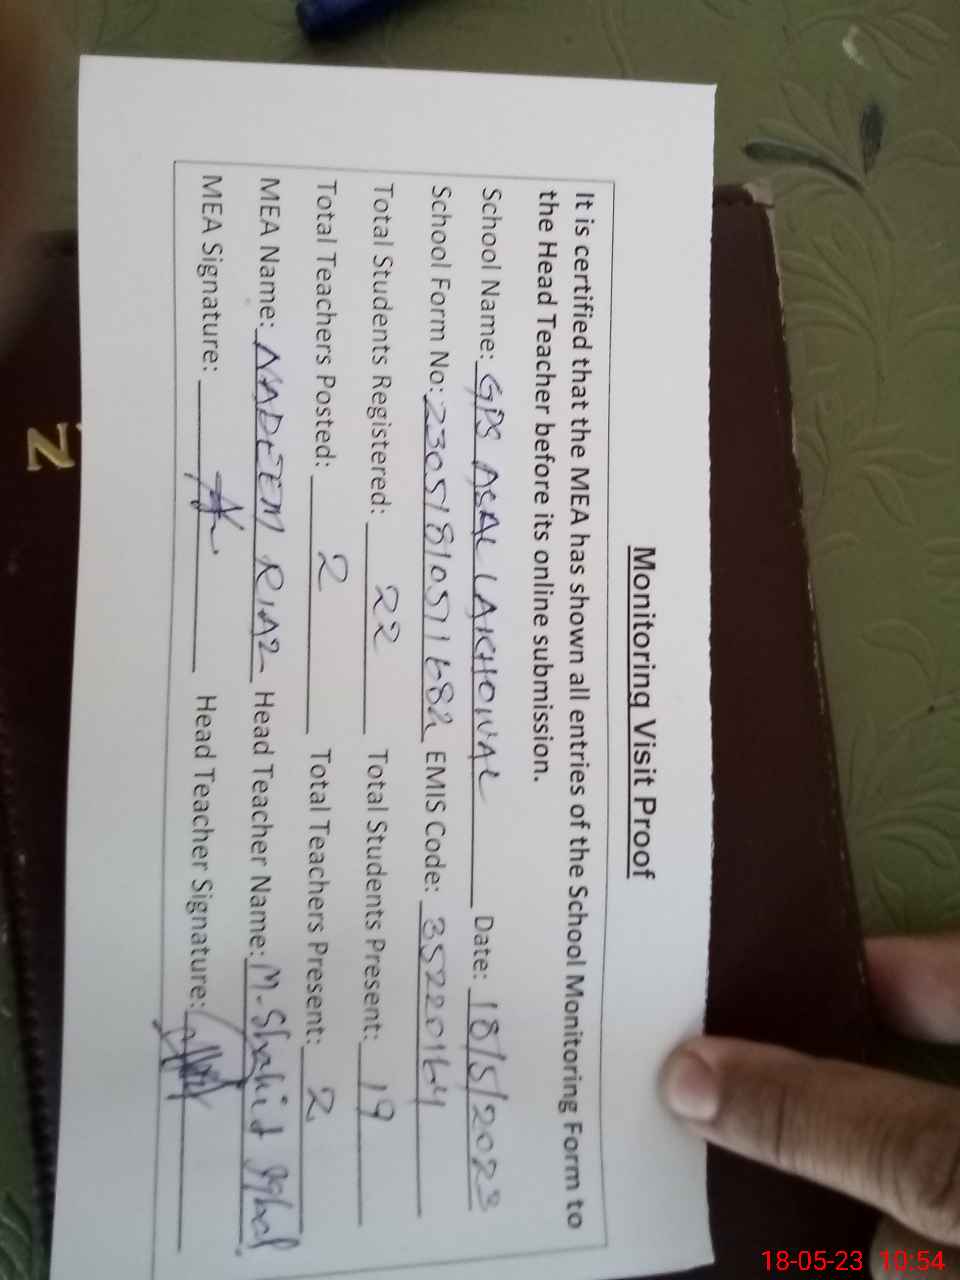 Monitoring Visit Proof
It is certified that the MEA has shown all entries of the School Monitoring Form to
the Head Teacher before its online submission.
School Name: GPS ASAL LAKHOWAL Date: 18/5/2023
School Form No: 23051810511682 EMIS Code: 35220164
Total Students Registered: 22 Total Students Present: 19
Total Teachers Posted: 2 Total Teachers Present: 2
MEA Name: NADEEM RIAZ Head Teacher Name: M. Shahid Iqbal
MEA Signature: Head Teacher Signature:
N
18-05-23 10:54